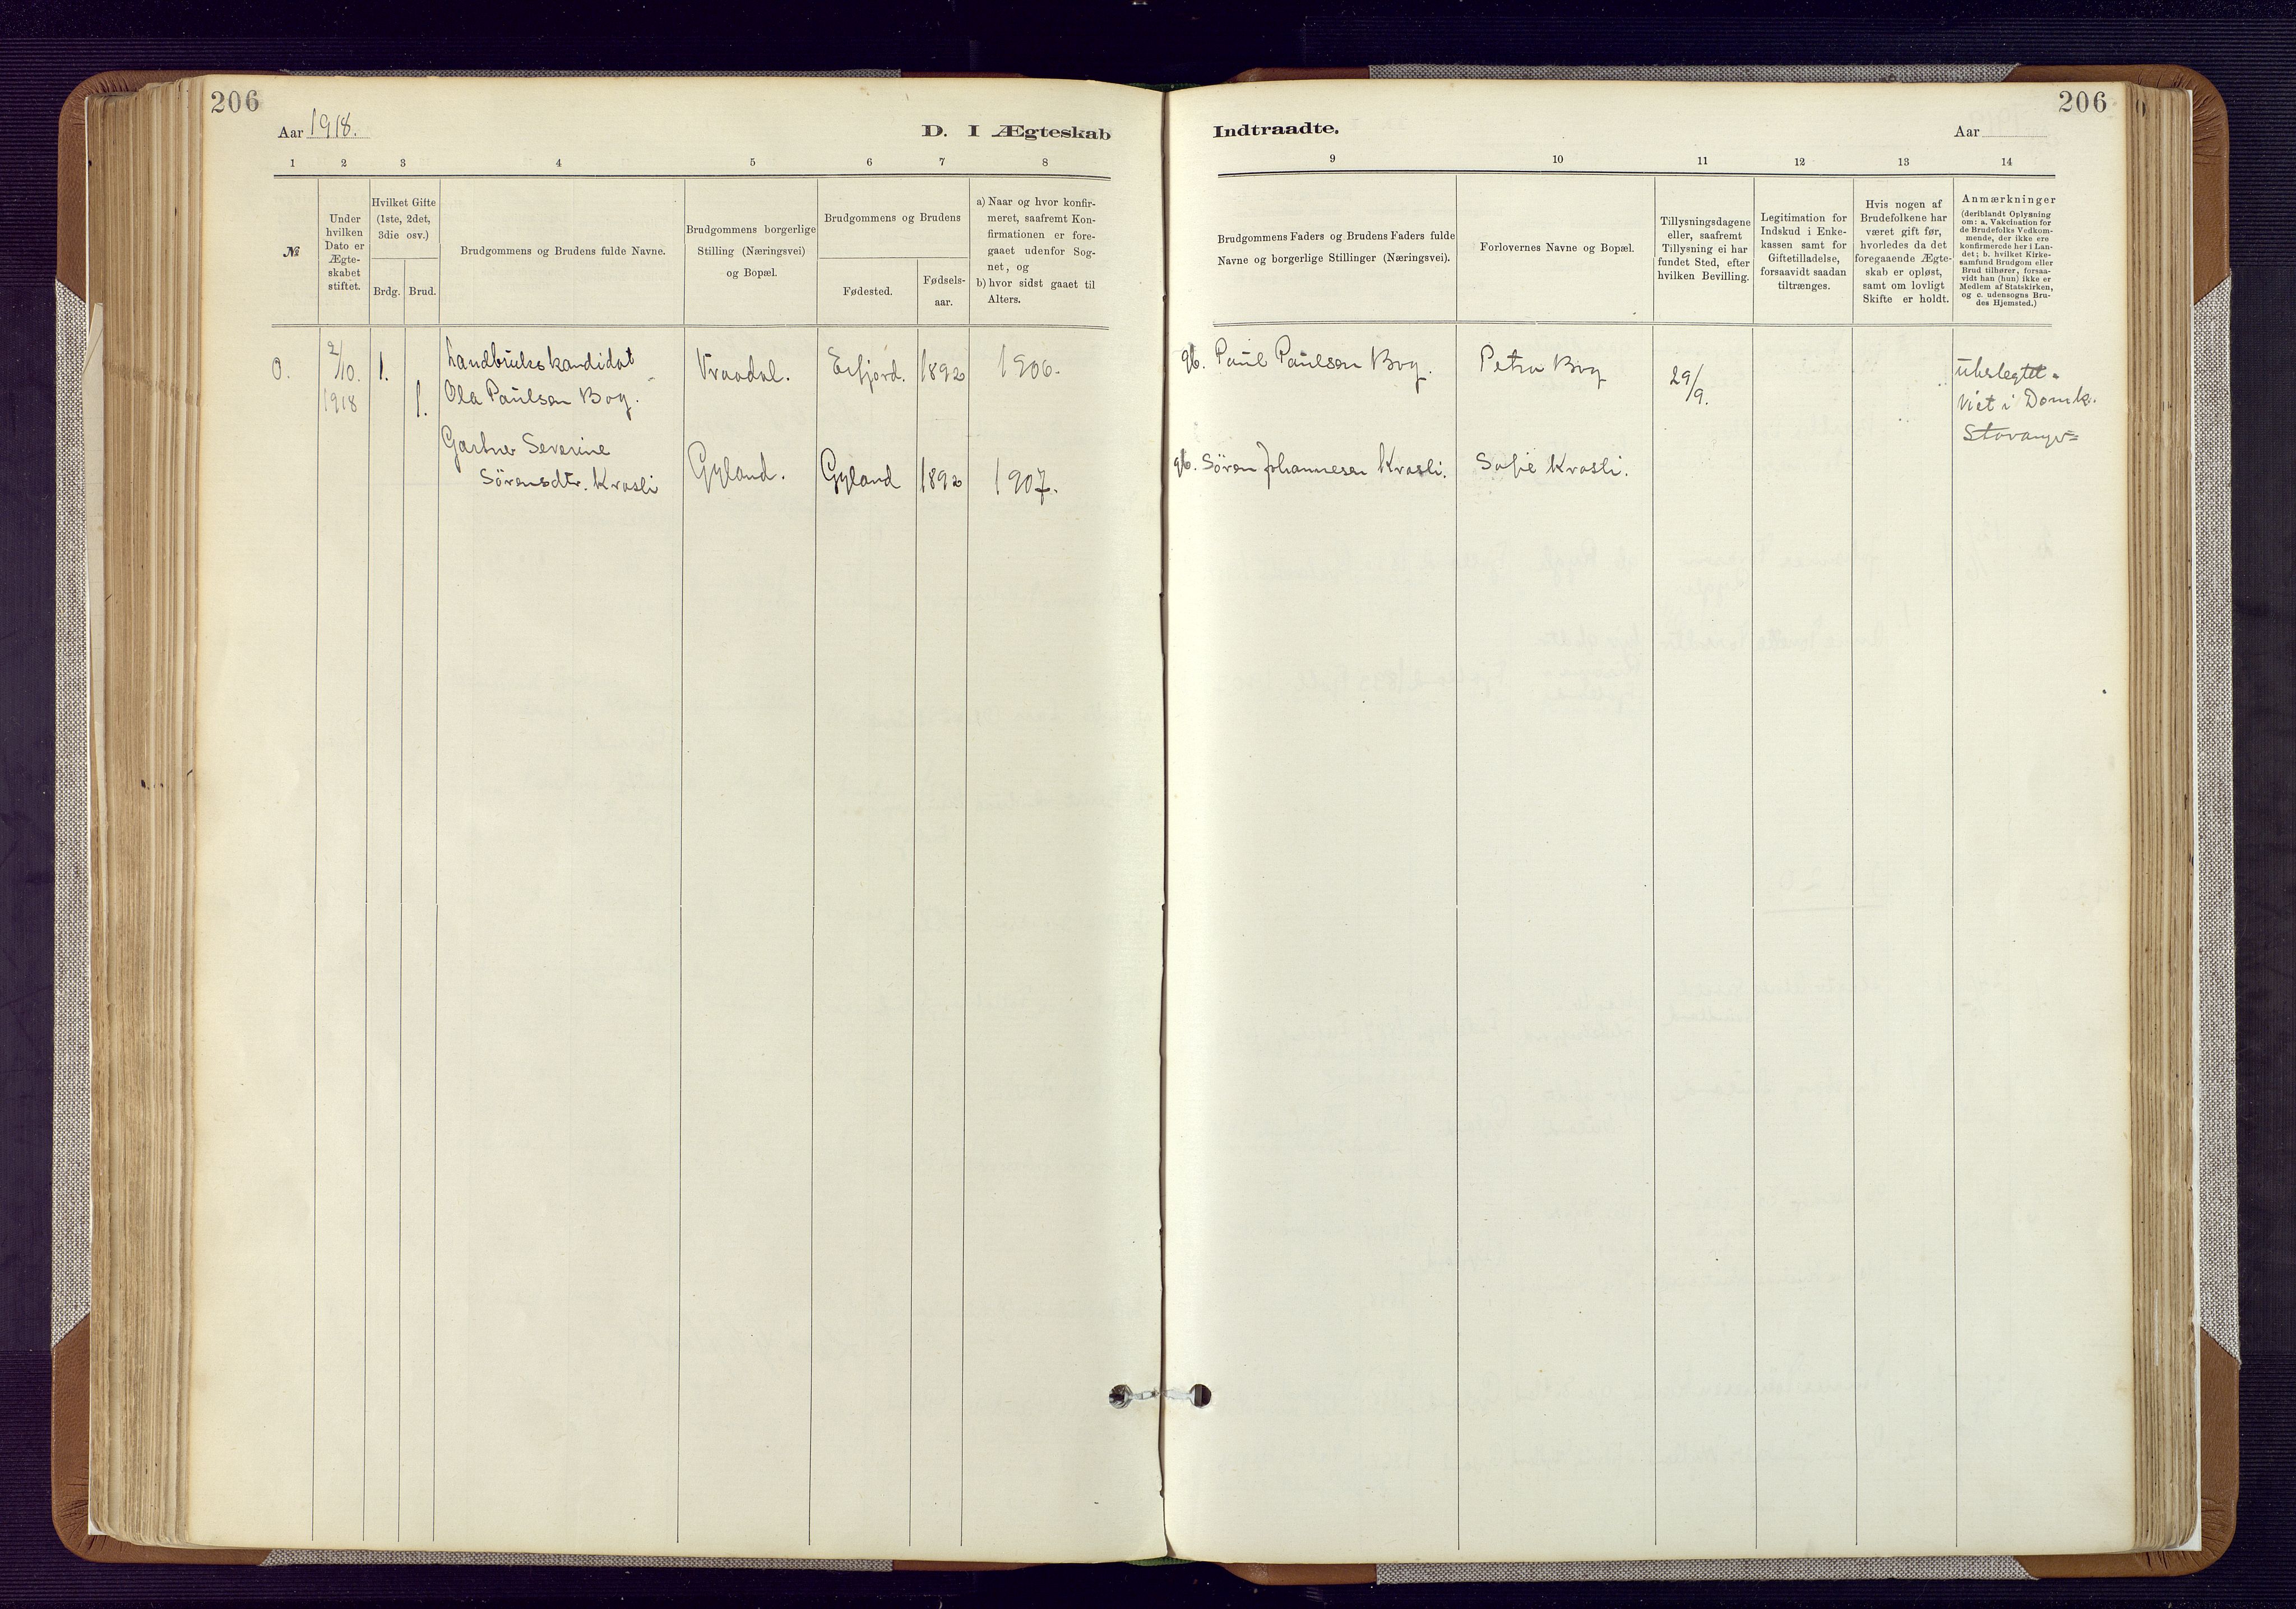 206
Aar 1918.
D. I Ægteskab
1 2 3 4 5 6 7 8
№
Under hvilken Dato er Ægte-
skabet stiftet.
Hvilket Gifte
(1ste, 2det,
3die osv.)
Brdg. Brud.
Brudgommens og Brudens fulde Navne.
Brudgommens borgerlige
Stilling (Næringsvei)
og Bopæl.
Brudgommens og Brudens
Fødested.
Fødsels-
aar.
a) Naar og hvor konfir-
meret, saafremt Kon-
firmationen er fore-
gaaet udenfor Sog-
net, og
b) hvor sidst gaaet til
Alters.
0. 2/10. 1. Landbrukskandidat Vraadal. Erfjord. 1892 1906.
1918 1. Ola Paulsen Bog.
Gartner Severine
Sörensdtr. Krosli Gyland. Gyland 1892 1907.
Indtraadte.
Aar
206
9 10 11 12 13 14
Brudgommens Faders og Brudens Faders fulde
Navne og borgerlige Stillinger (Næringsvei).
Forlovernes Navne og Bopæl.
Tillysningsdagene
eller, saafremt
Tillysning ei har
fundet Sted, efter
hvilken Bevilling.
Legitimation for
Indskud i Enke-
kassen samt for
Giftetilladelse,
forsaavidt saadan
tiltrænges.
Hvis nogen af
Brudefolkene har
været gift før,
hvorledes da det
foregaaende Ægte-
skab er opløst,
samt om lovligt
Skifte er holdt.
Anmærkninger
(deriblandt Oplysning
om: a. Vakcination for
de Brudefolks Vedkom-
mende, der ikke ere
konfirmerede her i Lan-
det; b. hvilket Kirke-
samfund Brudgom eller
Brud tilhører, forsaa-
vidt han (hun) ikke er
Medlem af Statskirken,
og c. udensogns Bru-
des Hjemsted.)
gb. Paul Paulsen Bog. Petra Bog 29/9. ubeslegtet.
Viet i Domk.
Stavanger
gb. Sören Johannesen Krosli. Sofie Krosli.